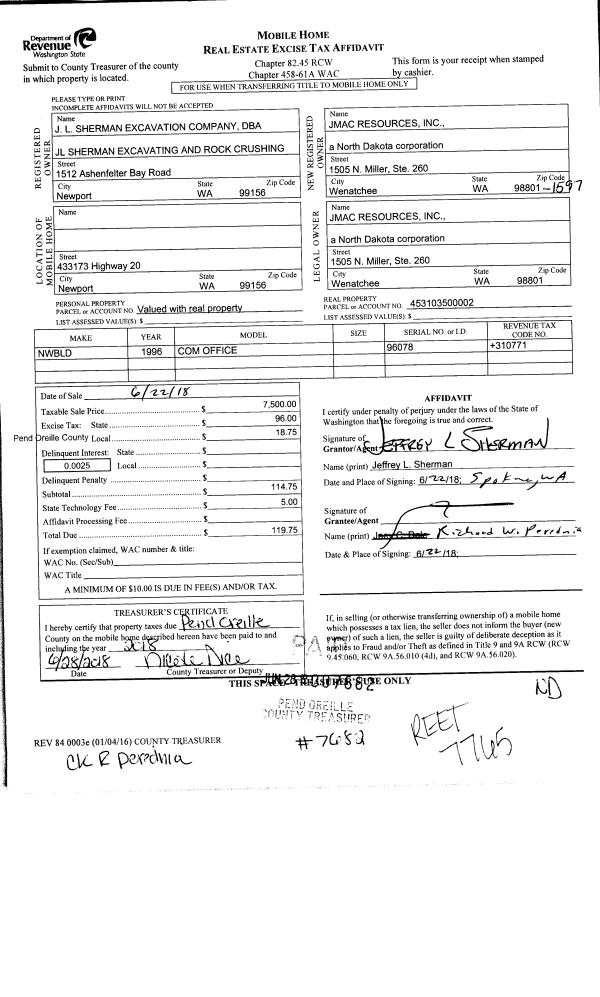 Department of
Revenue
Washington State
MOBILE HOME
REAL ESTATE EXCISE TAX AFFIDAVIT
Submit to County Treasurer of the county
in which property is located.
Chapter 82.45 RCW
Chapter 458-61A WAC
This form is your receipt when stamped
by cashier.
FOR USE WHEN TRANSFERRING TITLE TO MOBILE HOME ONLY
PLEASE TYPE OR PRINT
INCOMPLETE AFFIDAVITS WILL NOT BE ACCEPTED
REGISTERED OWNER
Name
J. L. SHERMAN EXCAVATION COMPANY, DBA
JL SHERMAN EXCAVATING AND ROCK CRUSHING
Street
1512 Ashenfelter Bay Road
City State Zip Code
Newport WA 99156
NEW REGISTERED OWNER
Name
JMAC RESOURCES, INC.,
a North Dakota corporation
Street
1505 N. Miller, Ste. 260
City State Zip Code
Wenatchee WA 98801-1597
LOCATION OF MOBILE HOME
Name
Street
433173 Highway 20
City State Zip Code
Newport WA 99156
LEGAL OWNER
Name
JMAC RESOURCES, INC.,
a North Dakota corporation
Street
1505 N. Miller, Ste. 260
City State Zip Code
Wenatchee WA 98801
PERSONAL PROPERTY
PARCEL or ACCOUNT NO. Valued with real property
LIST ASSESSED VALUE(S): $
REAL PROPERTY
PARCEL or ACCOUNT NO. 453103500002
LIST ASSESSED VALUE(S): $
MAKE YEAR MODEL SIZE SERIAL NO. or I.D. REVENUE TAX CODE NO.
NWBLD 1996 COM OFFICE 96078 +310771
Date of Sale 6/22/18
Taxable Sale Price $ 7,500.00
Excise Tax: State $ 96.00
Pend Oreille County Local $ 18.75
Delinquent Interest: State $
0.0025 Local $
Delinquent Penalty $
Subtotal $ 114.75
State Technology Fee $ 5.00
Affidavit Processing Fee $
Total Due $ 119.75
If exemption claimed, WAC number & title:
WAC No. (Sec/Sub)
WAC Title
A MINIMUM OF $10.00 IS DUE IN FEE(S) AND/OR TAX.
AFFIDAVIT
I certify under penalty of perjury under the laws of the State of
Washington that the foregoing is true and correct.
Signature of
Grantor/Agent JEFFREY L SHERMAN
Name (print) Jeffrey L. Sherman
Date and Place of Signing: 6/22/18; Spokane, WA
Signature of
Grantee/Agent
Name (print) Richard W. Perednia
Date & Place of Signing: 6/22/18;
TREASURER'S CERTIFICATE
I hereby certify that property taxes due Pend Oreille
County on the mobile home described hereon have been paid to and
including the year 2018
6/28/2018 Nicole Dice
Date County Treasurer or Deputy
If, in selling (or otherwise transferring ownership of) a mobile home
which possesses a tax lien, the seller does not inform the buyer (new
owner) of such a lien, the seller is guilty of deliberate deception as it
applies to Fraud and/or Theft as defined in Title 9 and 9A RCW (RCW
9.45.060, RCW 9A.56.010 (4d), and RCW 9A.56.020).
THIS SPACE TREASURER'S USE ONLY
PEND OREILLE
COUNTY TREASURER
ND
REV 84 0003e (01/04/16) COUNTY TREASURER
#7682
REET
7765
CK R Perednia